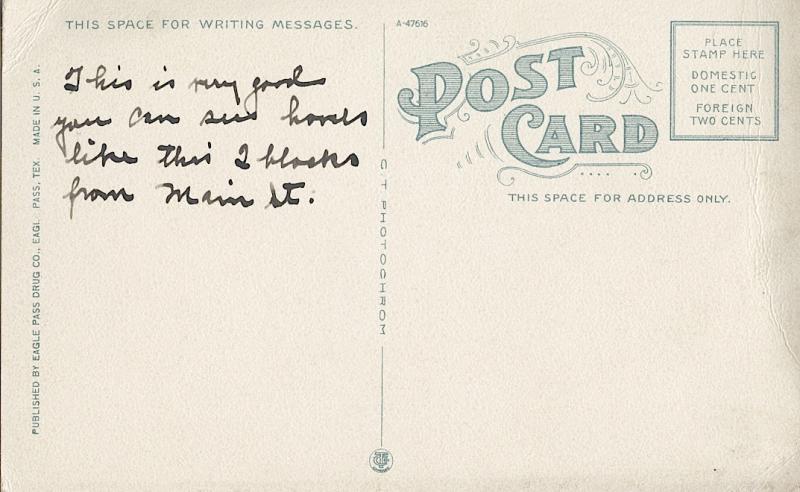 THIS SPACE FOR WRITING MESSAGES.
This is very good
you can see hovels
like this 2 blocks
from Main St.
PUBLISHED BY EAGLE PASS DRUG CO., EAGL PASS, TEX. MADE IN U. S. A.
C T PHOTOCHROM
A-47616
POST
CARD
THIS SPACE FOR ADDRESS ONLY.
PLACE
STAMP HERE
DOMESTIC
ONE CENT
FOREIGN
TWO CENTS